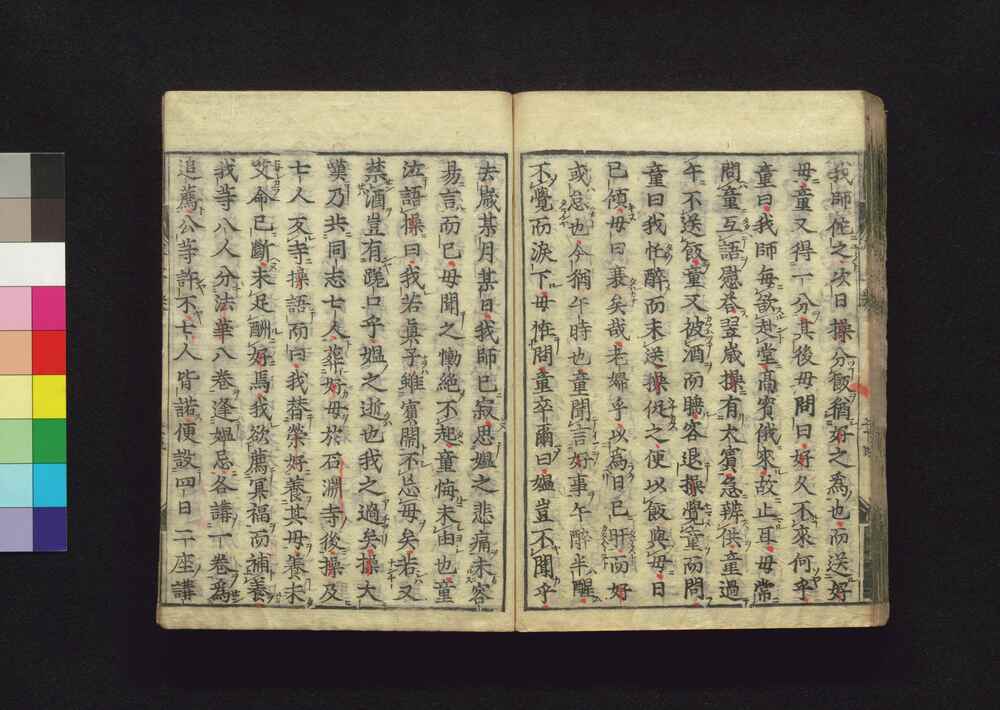 我師從之次日操分飯猶好之為也而送好
母童又得一分其後母問曰好久不來何乎
童曰我師每欲赴堂高賓俄來故止耳母常
問童互語慰荅翌歲操有大賓急辨供童過
午不送飯童又被酒而睡客退操覺童而問
童曰我怯醉而未送操促之便以飯與母日
已傾母曰衰矣哉老婦乎以為日已旰而好
或忘也今猶午時也童聞言好事午醉半醒
不覺而淚下母恠問童卒爾曰媼豈不聞乎
去歲某月某日我師已寂思媼之悲痛未容
易言而已母聞之慟絕不起童悔未由也童
泣語操曰我若真子雖賓鬧不忘母矣若又
禁酒豈有跣口乎媼之逝也我之過矣操大
嘆乃共同志七人葬好母於石淵寺後操及
七人友寺操語而曰我替榮好養其母養未
父命已斷未足酬好焉我欲薦冥福而補養
我等八人分法華八卷逢媼忌各講一卷為
追薦公等許不七人皆諾便設四日二座講